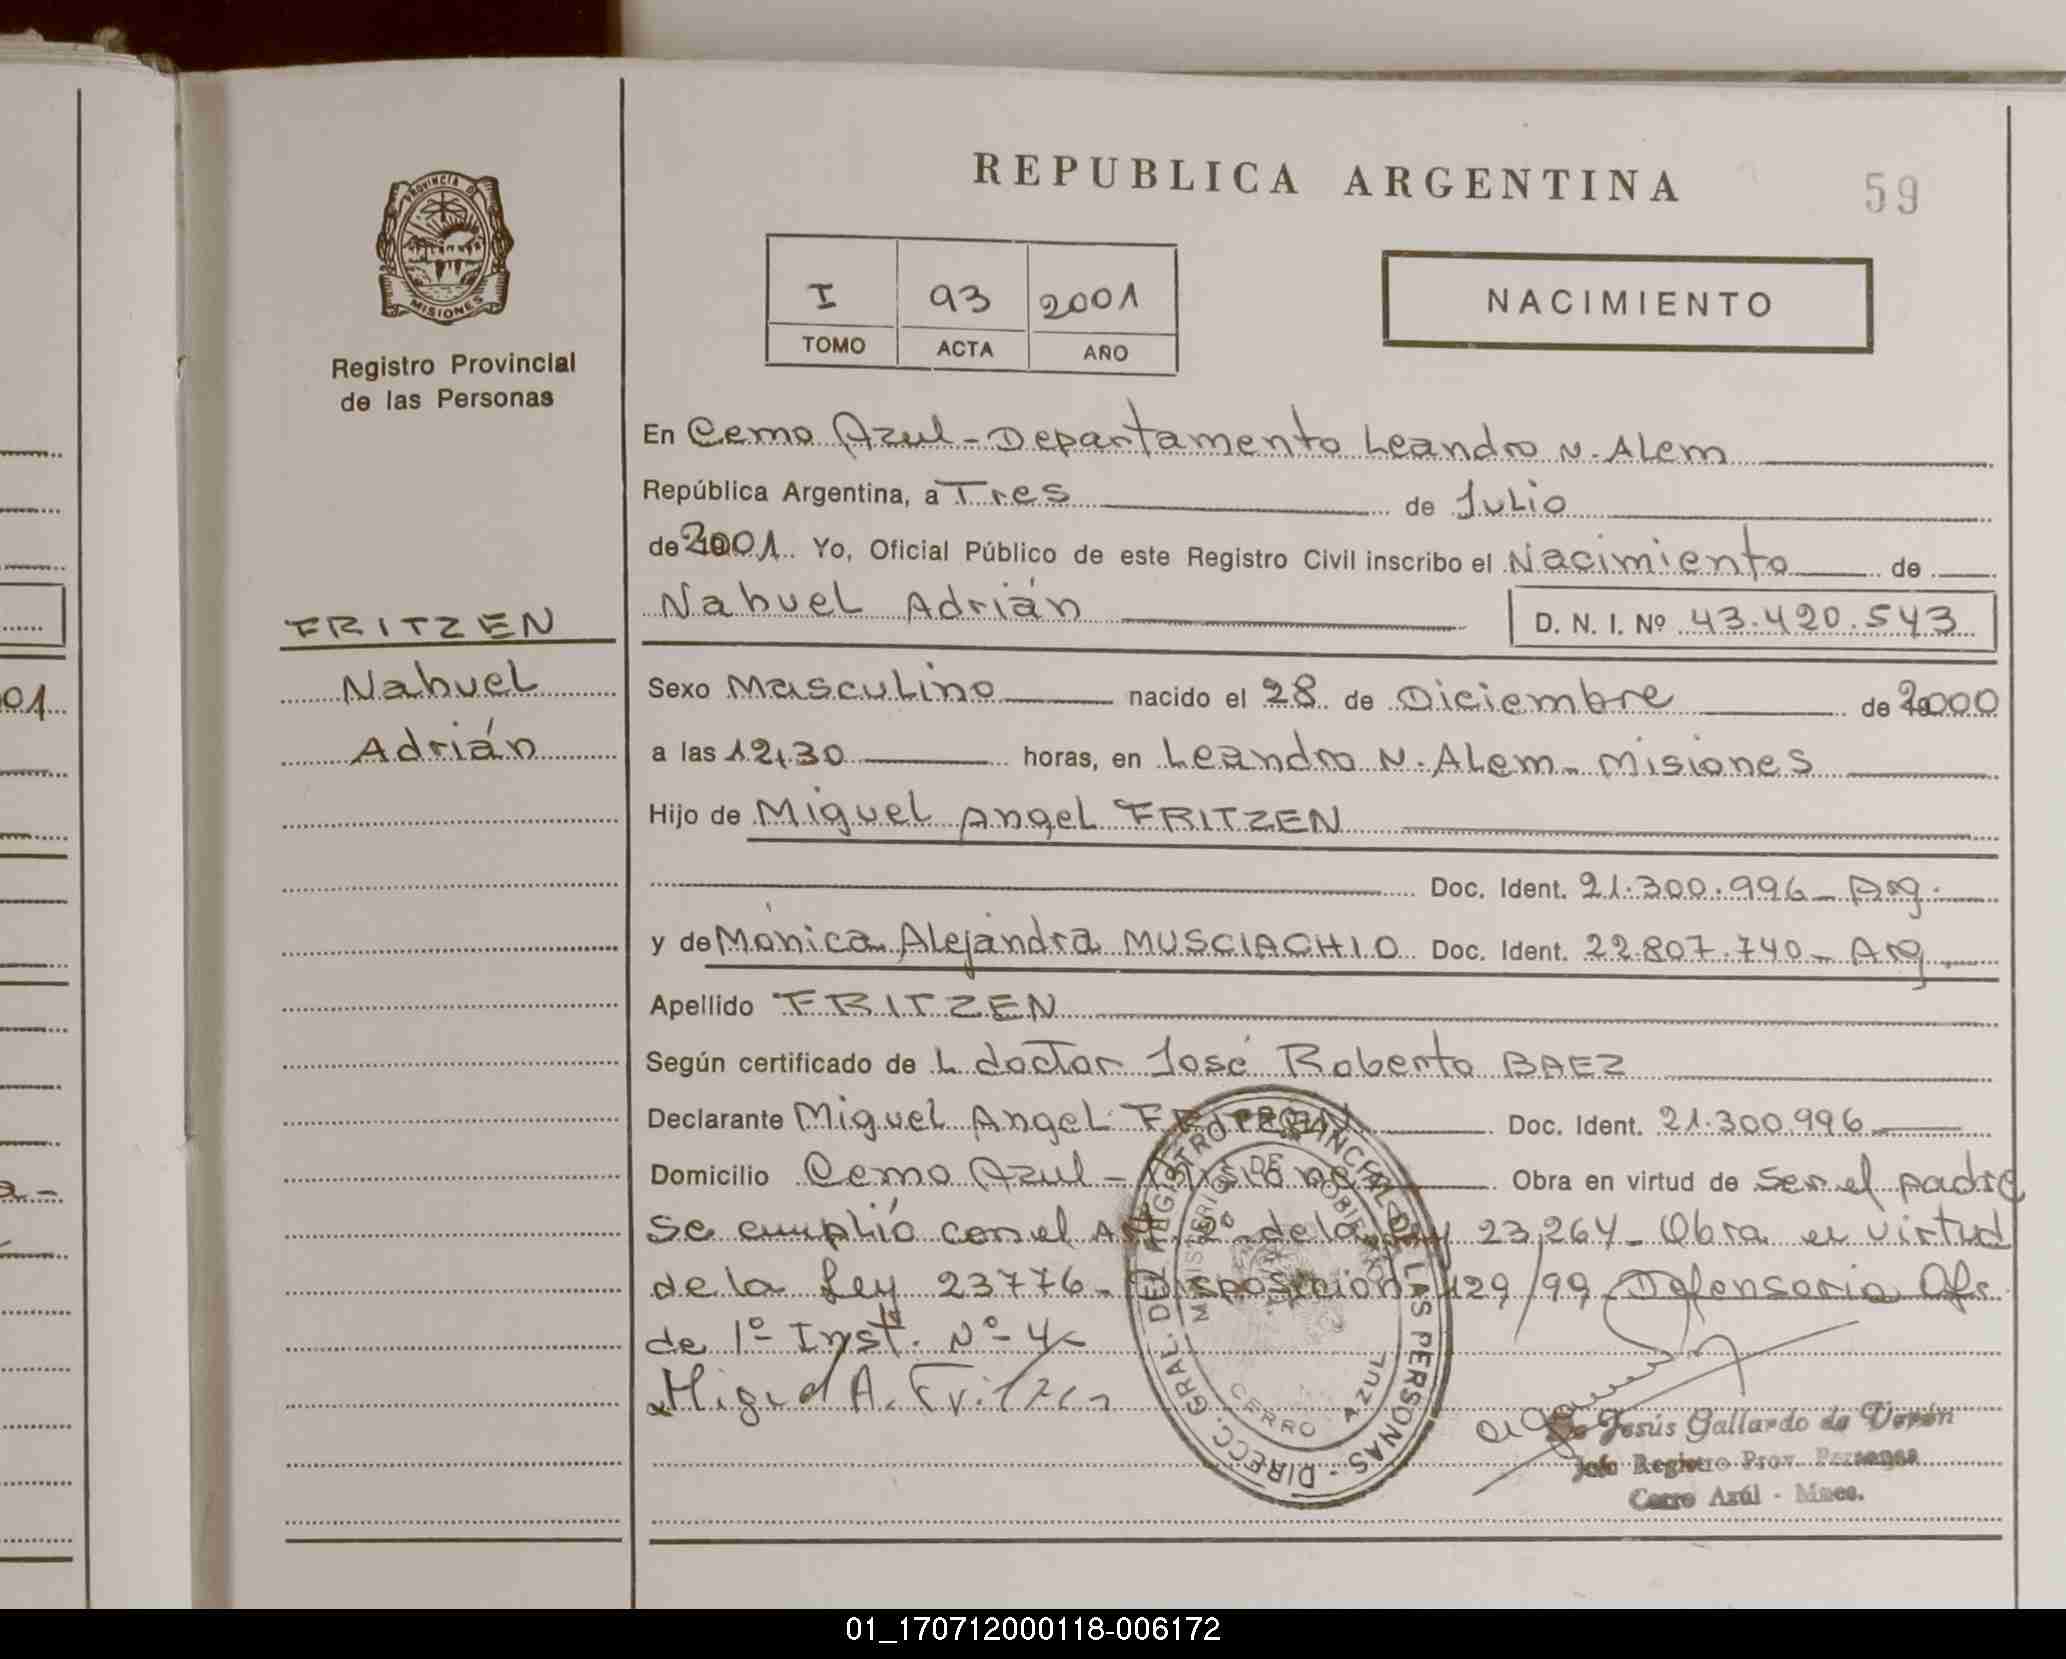 REPUBLICA ARGENTINA
59
PROVINCIA DE
MISIONES
Registro Provincial
de las Personas
I 93 2001
TOMO ACTA AÑO
NACIMIENTO
En Cerro Azul - Departamento Leandro N. Alem
República Argentina, a Tres de Julio
de 2001. Yo, Oficial Público de este Registro Civil inscribo el Nacimiento de
Nahuel Adrián D. N. I. Nº 43.420.543
FRITZEN
Nahuel
Adrián
Sexo Masculino nacido el 28 de Diciembre de 2000
a las 12,30 horas, en Leandro N. Alem - Misiones
Hijo de Miguel Angel FRITZEN
Doc. Ident. 21.300.996 - Arg.
y de Mónica Alejandra MUSCIACHIO Doc. Ident. 22.807.740 - Arg
Apellido FRITZEN
Según certificado de L doctor José Roberto BAEZ
Declarante Miguel Angel FRITZEN Doc. Ident. 21.300.996
Domicilio Cerro Azul - Misiones Obra en virtud de Ser el padre
Se cumplió con el Art. 2º de la Ley 23,264 - Obra en virtud
de la Ley 23776 - Disposicion 429/99 Defensoria Of.
de 1º Inst. Nº 4
Miguel A. Fritzen
DIRECC. GRAL. DEL REGISTRO PROVINCIAL DE LAS PERSONAS
MINISTERIO DE GOBIERNO
CERRO AZUL
Jesús Gallardo de Verón
Jefe Registro Prov. Personas
Cerro Azúl - Mnes.
01
01_170712000118-006172